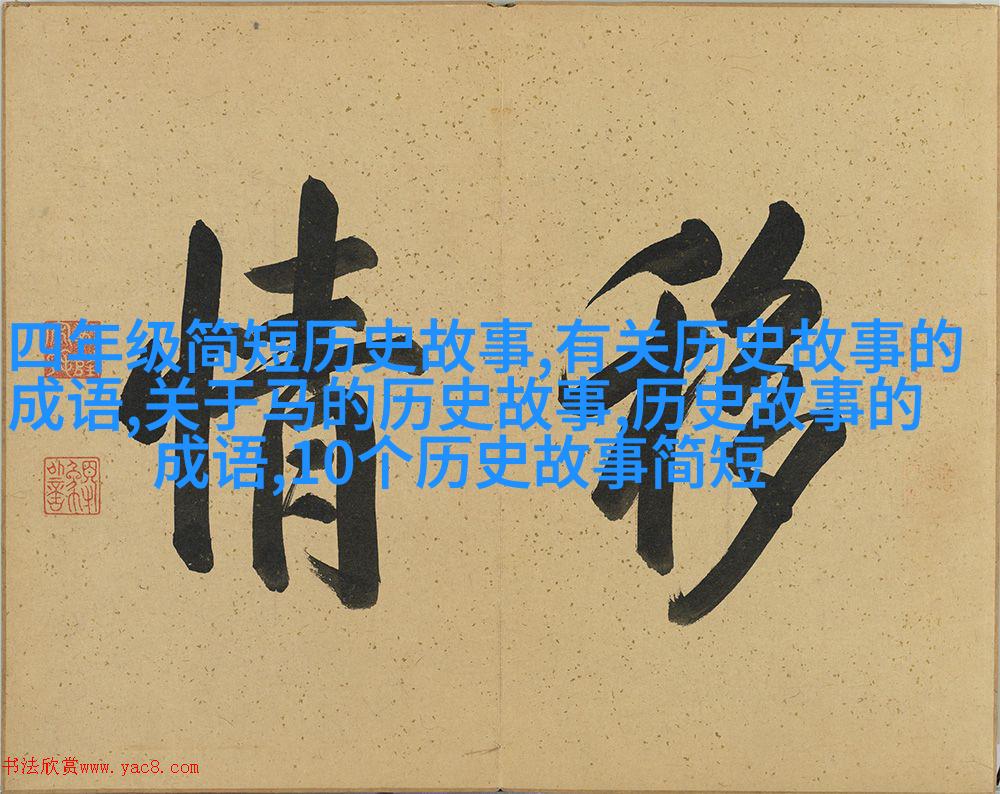 移情
四年级简短历史故事,有关历史故事的
成语,关于马的历史故事,历史故事的
成语,10个历史故事简短
书法欣赏www.yac8.com